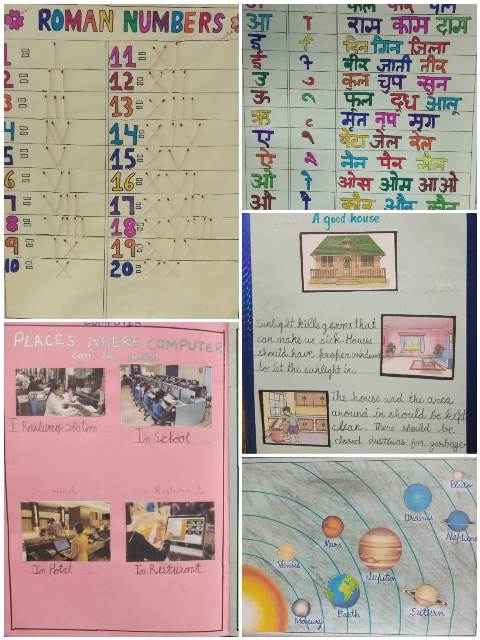 ROMAN NUMBERS
1 =
11 =
2 =
12 =
3 =
13 =
4 =
14 =
5 =
15 =
6 =
16 =
7 =
17 =
8 =
18 =
9 =
19 =
10 =
20 =
आ ा राम काम दाम
इ ि दिन गिन जिला
ई ी वीर जाती तीर
उ ु कुल चुप सुन
ऊ ू फूल दूध आलू
ऋ ृ मृत नृप मृग
ए े बेटा जेल बेल
ऐ ै नैन पैर मैल
ओ ो ओस ओम आओ
औ ौ कौन और कौन
A good house
Sunlight kills germs that
can make us sick. House
should have proper windows
to let the sunlight in.
The house and the area
around in should be kept
clean. There should be
closed dustbins for garbage.
COMPUTER
PLACES WHERE COMPUTER
can be
I Railway Station
In School
In Hotel
In Resturant
In Hotel
In Resturant
Pluto
Uranus
Neptune
Mars
Venus
Jupiter
Mercury
Earth
Saturn